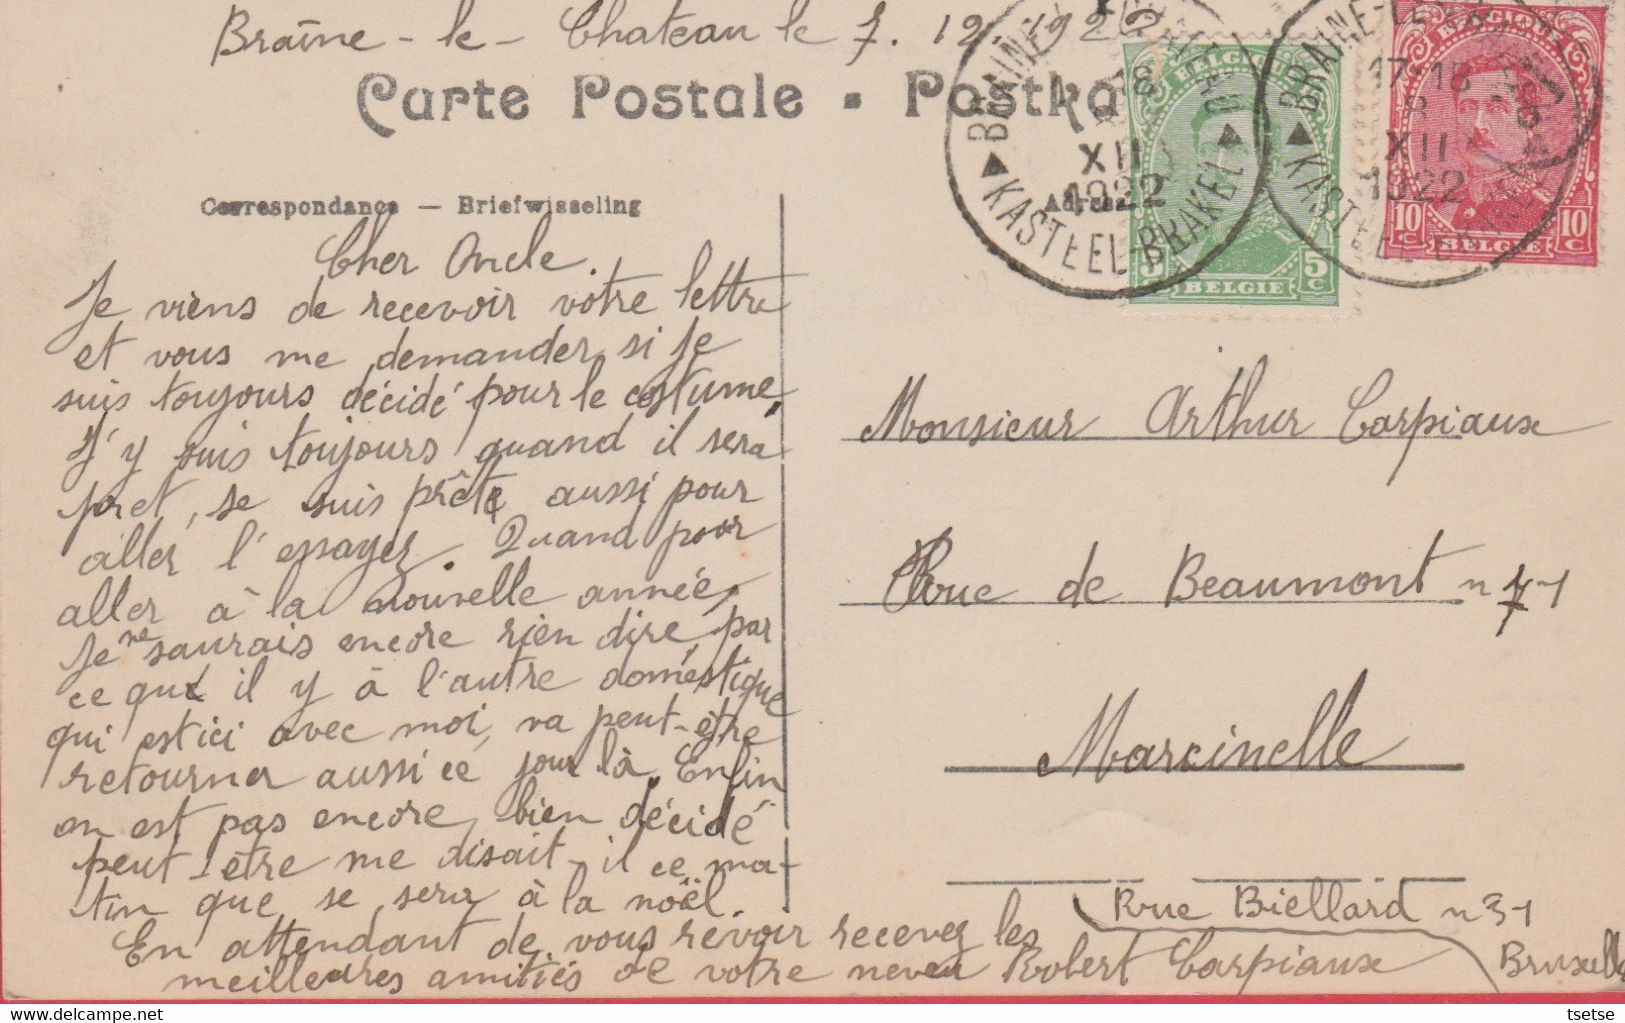 Braîne-le-Chateau le 7. 12. 1922
Carte Postale - Postka
Correspondance — Briefwisseling
Cher Oncle.
Je viens de recevoir votre lettre
et vous me demander si je
suis toujours décidé pour le costume,
J'y suis toujours quand il sera
pret, je suis prête aussi pour
aller l'essayer. Quand pour
aller à la nouvelle année,
Je ne saurais encore rien dire, par
ce que il y à l'autre doméstique
qui est ici avec moi, va peut-être
retourner aussi ce jour là. Enfin
on est pas encore, bien décidé
peut-être me disait-il ce ma-
tin que se sera à la noël.
En attendant de vous revoir recevez les
meilleures amitiés de votre neveu Robert Carpiaux
Rue Biellard n 31
Bruxelles
KASTEEL BRAKEL
XII
1922
BELGIE
5c
17-18
8
XII
1922
10c BELGIE 10c
Monsieur Arthur Carpiaux
Rue de Beaumont n 71
Marcinelle
tsetse